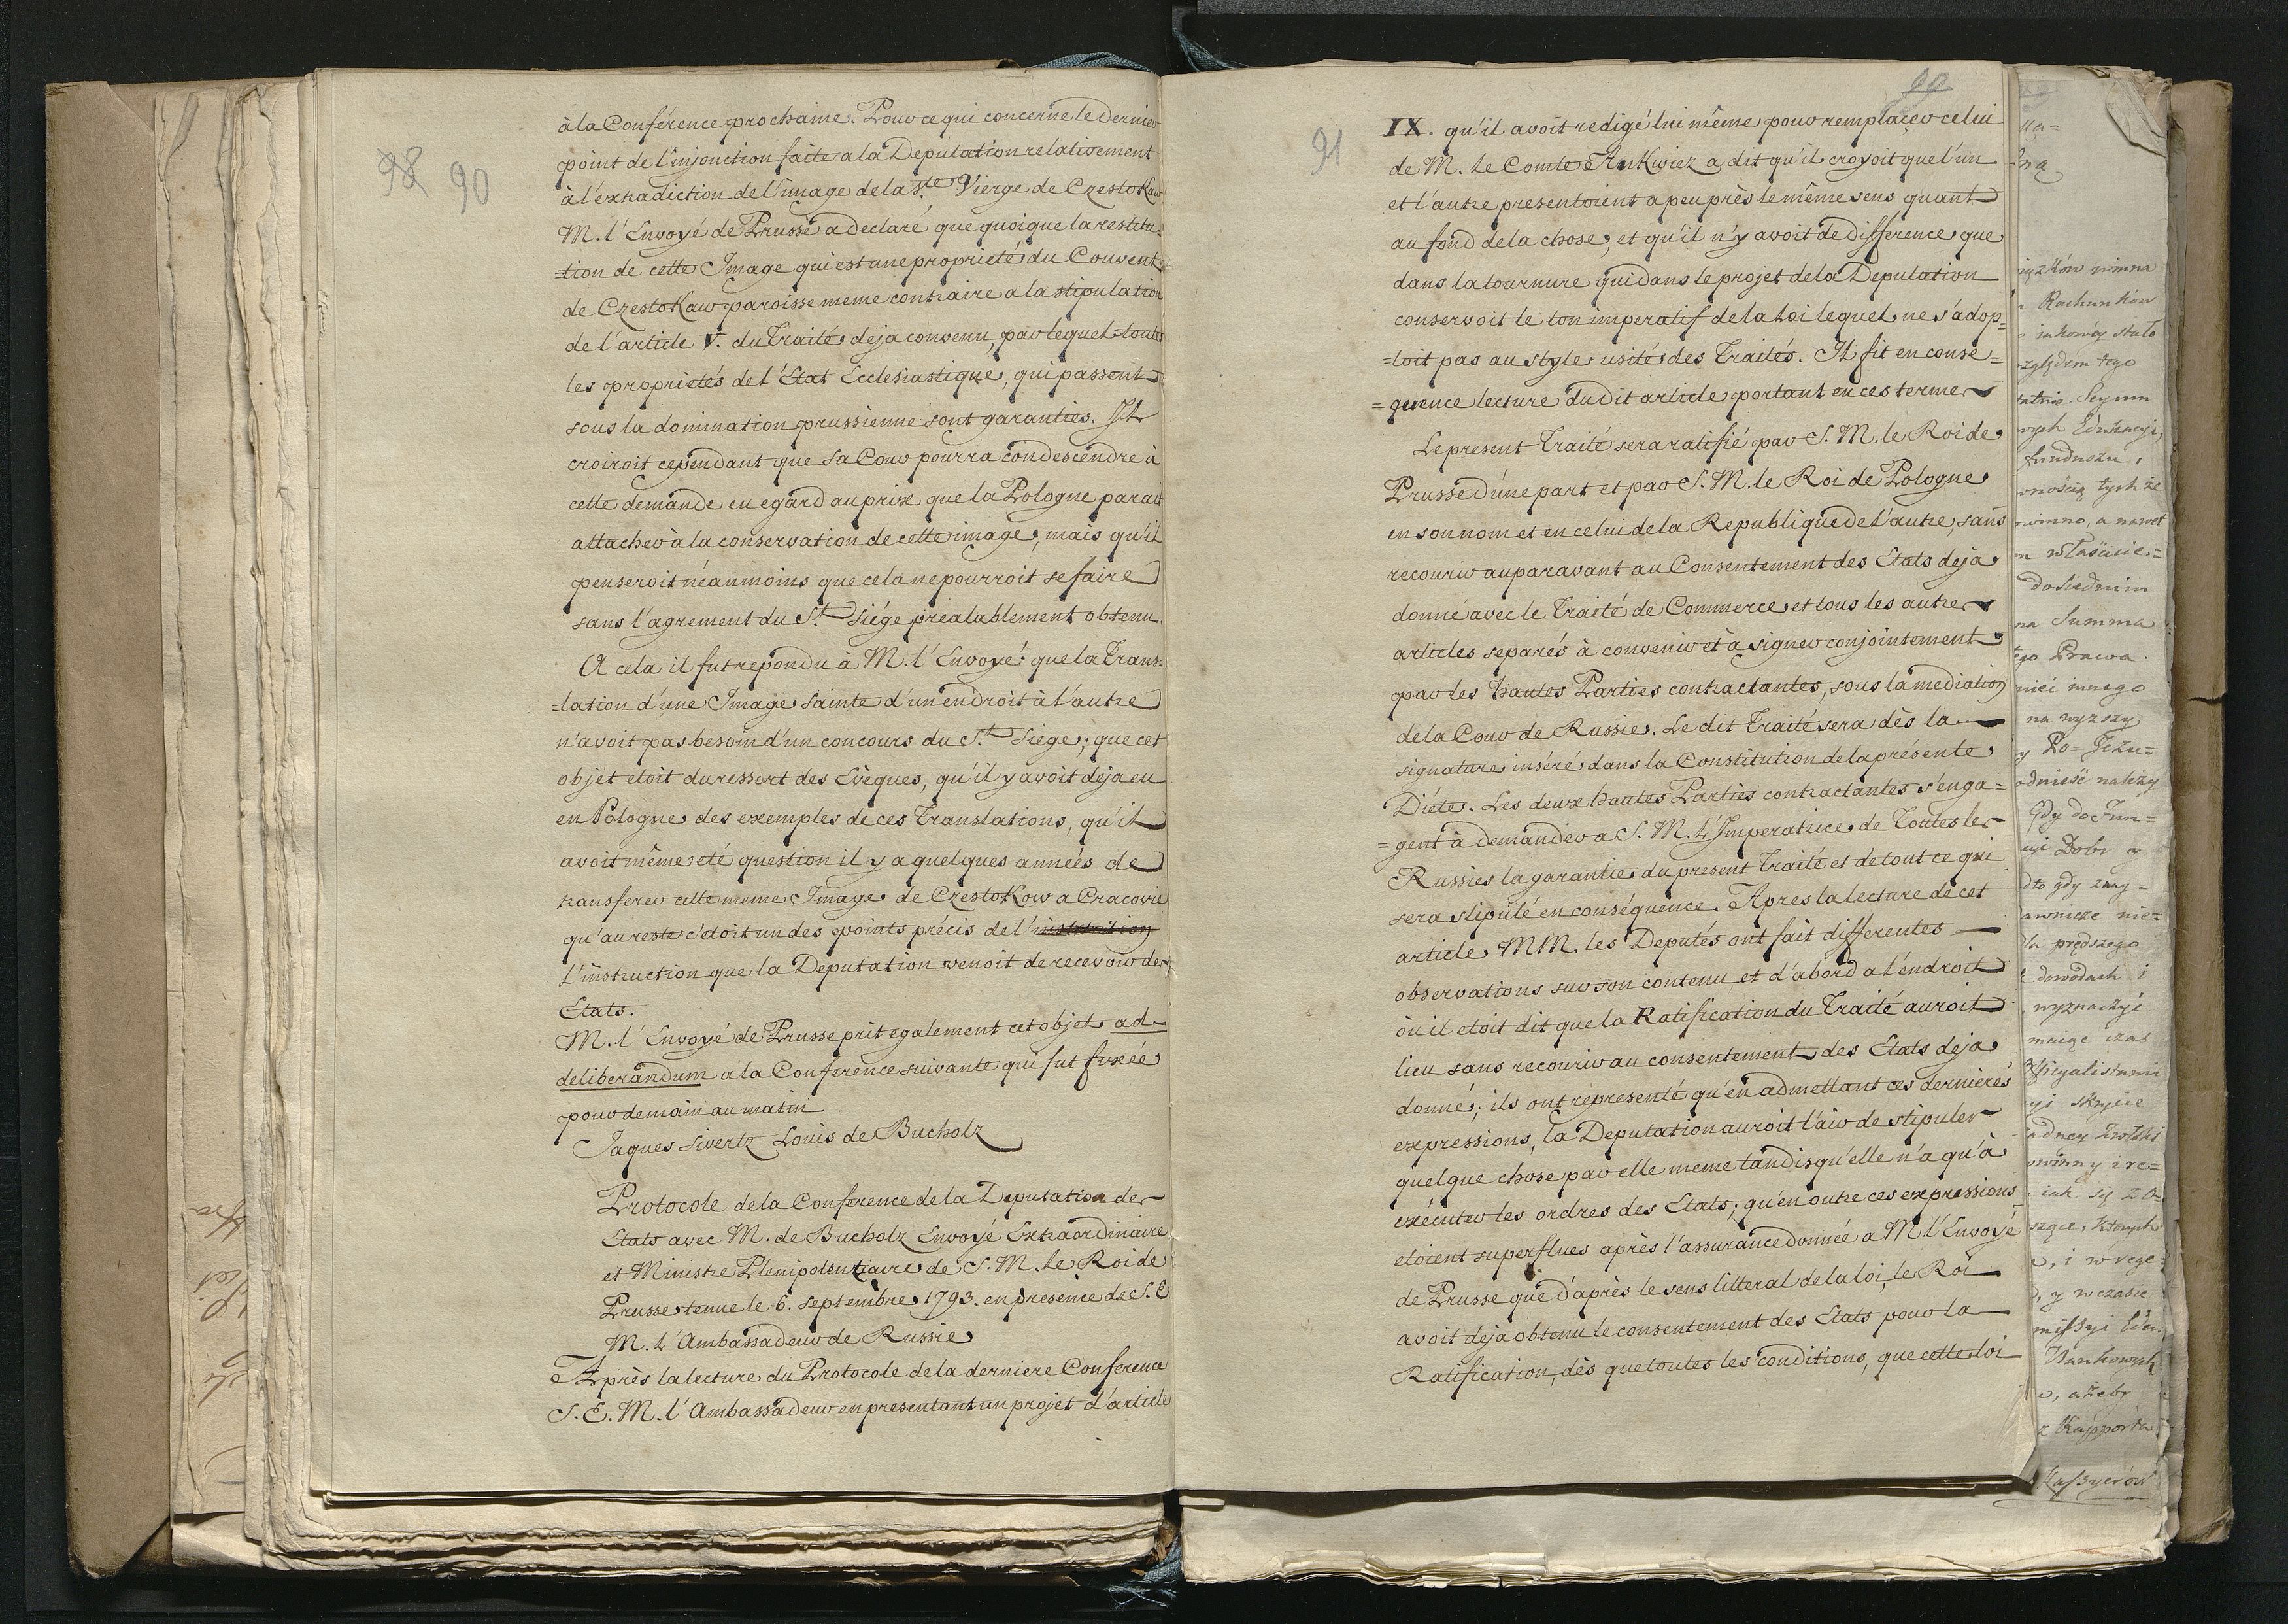 98 90
à la Conférence prochaine. Pour ce qui concerne le dernier
point de l'injonction faite a la Deputation rélativement
à l'extradiction de l'image de la Ste Vierge de CzestoKaw
M. l'Envoyé de Prusse a declaré que quoique la restitu=
=tion de cette Image qui est une proprieté du Couvent
de CzestoKaw paroisse meme contraire a la stipulation
de l'article V. du Traité deja convenu, par lequel toutes
les proprietés de l'Etat Ecclesiastique, qui passent
sous la domination prussienne sont garanties. Il
croiroit cependant que sa Cour pourra condescendre à
cette demande eu egard au prix que la Pologne parait
attacher à la conservation de cette image, mais qu'il
penseroit néanmoins que cela ne pourroit se faire
sans l'agrement du St. Siége prealablement obtenu.
A cela il fut repondu à M. l'Envoyé que la Trans=
=lation d'une Image sainte d'un endroit à l'autre
n'avoit pas besoin d'un concours du St. Siége; que cet
objet etoit du ressort des Evêques, qu'il y avoit deja eu
en Pologne des exemples de ces Translations, qu'il
avoit même eté question il y a quelques années de
transferer cette meme Image de CzestoKow a Cracovie
qu'au reste c'etoit un des points précis de l'instruction
L'instruction que la Deputation venoit de recevoir des
Etats.
M. l'Envoyé de Prusse prit egalement cet objet ad
deliberandum a la Conference suivante qui fut fixée
pour demain au matin
Jaques Sivertz Louis de Bucholz
Protocole de la Conference de la Deputation des
Etats avec M. de Bucholz Envoyé Extraordinaire
et Ministre Plenipotentiaire de S. M. le Roi de
Prusse tenue le 6. septembre 1793. en presence de S. E.
M. L'Ambassadeur de Russie
Après la lecture du Protocole de la derniere Conference
S. E. M. l'Ambassadeur en presentant un projet d'article
91
IX. qu'il avoit redigé lui même pour remplacer celui
de M. le Comte AnKwicz a dit qu'il croyoit que l'un
et l'autre presentoient a peu près le même sens quant
au fond de la chose, et qu'il n'y avoit de difference que
dans la tournure qui dans le projet de la Deputation
conservoit le ton imperatif de la Loi lequel ne s'adop=
=toit pas au style usité des Traités. Il fit en conse=
=quence lecture du dit article portant en ces termes
Le present Traité sera ratifié par S. M. le Roi de
Prusse d'une part et par S. M. le Roi de Pologne
en son nom et en celui de la Republique de l'autre, sans
recourir auparavant au Consentement des Etats deja
donné avec le Traité de Commerce et tous les autres
articles separés à convenir et à signer conjointement
par les hautes Parties contractantes, sous la mediation
de la Cour de Russie. Le dit Traité sera dès la
signature inséré dans la Constitution de la présente
Diéte. Les deux hautes Parties contractantes s'enga=
=gent à demander a S. M. L'Imperatrice de Toutes les
Russies la garantie du present Traité et de tout ce qui
sera stipulé en conséquence. Apres la lecture de cet
article MM. les Deputés ont fait differentes
observations sur son contenu et d'abord a l'endroit
où il etoit dit que la Ratification du Traité auroit
lieu sans recourir au consentement des Etats deja
donné; ils ont représenté qu'en admettant ces dernieres
expressions, la Deputation auroit l'air de stipuler
quelque chose par elle meme tandis qu'elle n'a qu'à
exécuter les ordres des Etats; qu'en outre ces expressions
etoient superflues après l'assurance donnée a M. l'Envoyé
de Prusse que d'après le sens litteral de la loi, le Roi
avoit deja obtenu le consentement des Etats pour la
Ratification, dès que toutes les conditions, que cette loi
Rachunków
względem tego
Seymu
Funduszu,
tychże
a nawet
Summa
Prawa
innego
na wyższy
należy
Gdy do Fun=
Dobr y
dto gdy
prędszego
dowodach i
czas
iak się
y w czasie
ażeby
z Rapporta